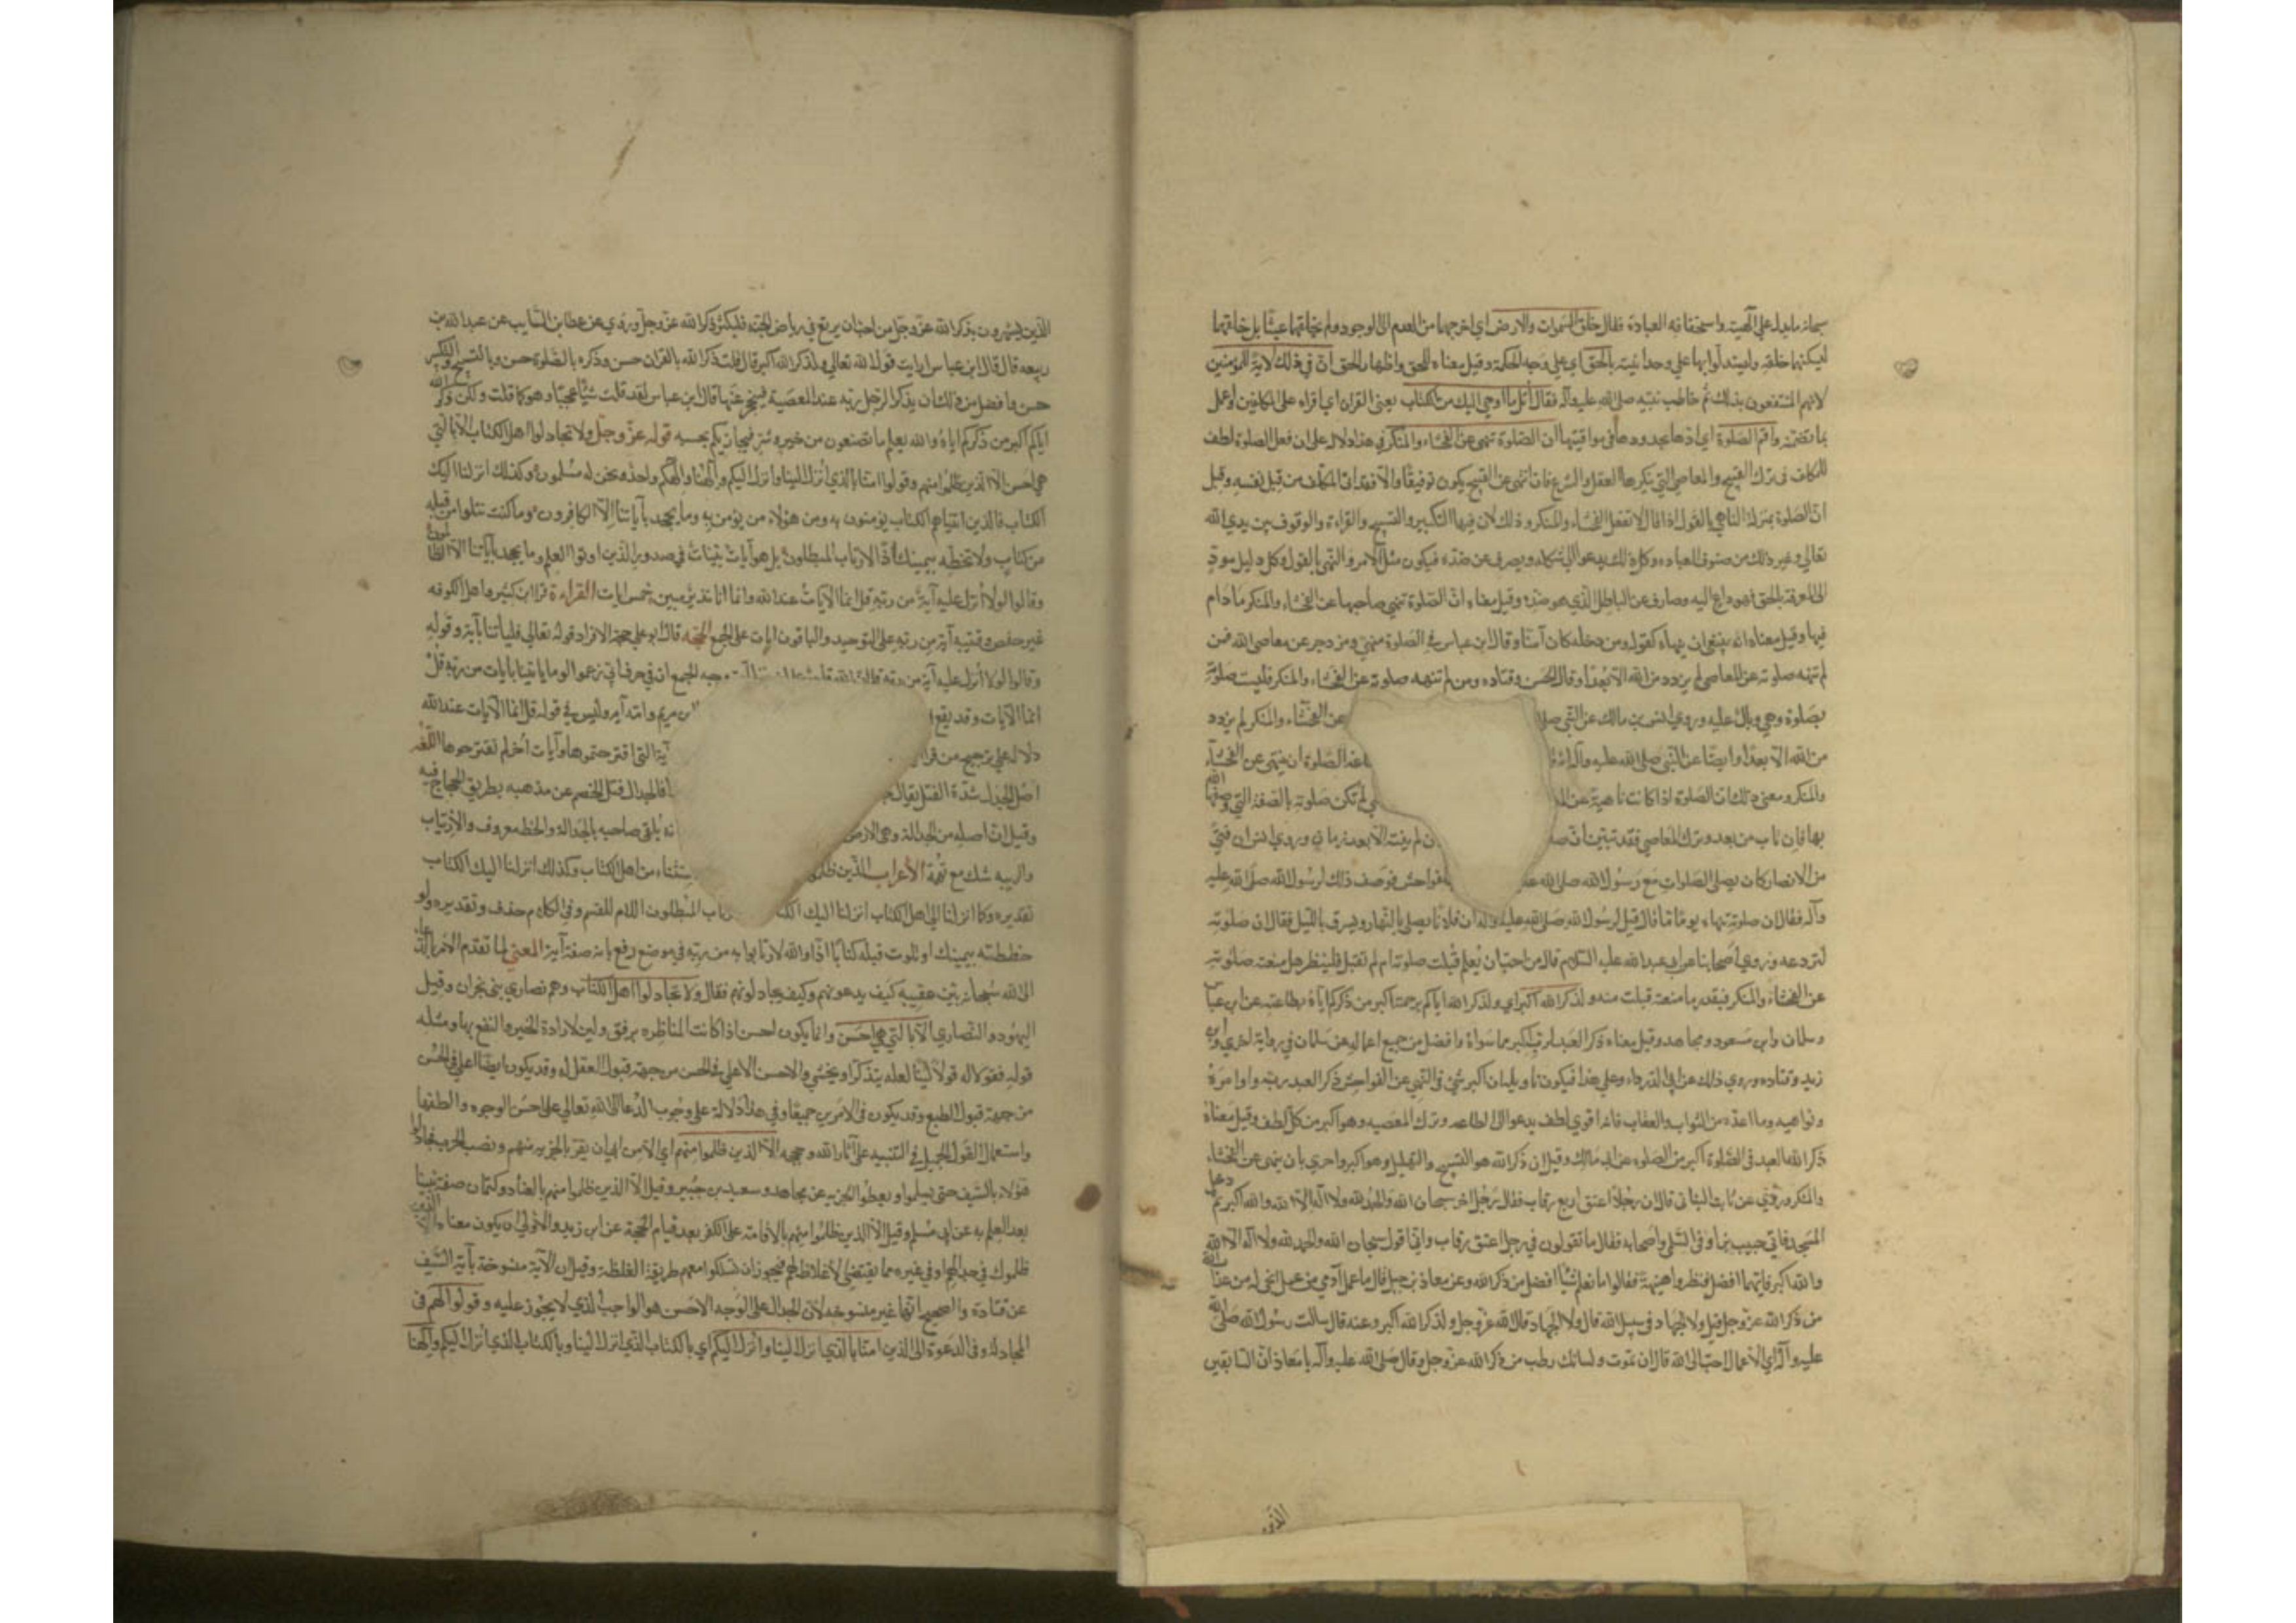 سبحانه ما يدل على الهيته واستحقاقه العبادة فقال خلق السموات والارض اي اخرجهما من العدم الى الوجود ولم يخلقهما عبثا بل خلقهما
ليسكنهما خلقه وليستدلوا بهما على وحدانيته بالحق اي على وجه الحكمة وقيل معناه للحق واظهار الحق ان في ذلك لاية للمؤمنين
لانهم المنتفعون بذلك ثم خاطب نبيه صلى الله عليه وآله فقال اتل ما اوحي اليك من الكتاب يعني القران اي اقراه على المكلفين واعمل
بما تضمنه واقم الصلوة اي ادها بحدودها في مواقيتها ان الصلوة تنهى عن الفحشاء والمنكر في هذا دلالة على ان فعل الصلوة لطف
للمكلف في ترك القبيح والمعاصي التي ينكرها العقل والشرع فان انتهى عن القبيح يكون توفيقا والا فقد اتى المكلف من قبل نفسه وقيل
ان الصلوة بمنزلة الناهي بالقول اذا قال لا تفعل الفحشاء والمنكر وذلك لان فيها التكبير والتسبيح والقراءة والوقوف بين يدي الله
تعالى وغير ذلك من صنوف العباده وكل ذلك يدعو الى شكله ويصرف عن ضده فيكون مثل الامر والنهي بالقول وكل دليل مود
الى المعرفة بالحق فهو داع اليه وصارف عن الباطل الذي هو ضده وقيل معناه ان الصلوة تنهي صاحبها عن الفحشاء والمنكر ما دام
فيها وقيل معناه انه ينبغي ان ينهاه كقوله ومن دخله كان آمنا وقال ابن عباس في الصلوة منهي ومزدجر عن معاصي الله فمن
لم تنهه صلوته عن المعاصي لم يزدد من الله الا بعدا وقال الحسن وقتاده ومن لم تنهه صلوته عن الفحشاء والمنكر فليست صلوته
بصلوة وهي وبال عليه وروي انس بن مالك عن النبي صلى عن الفحشاء والمنكر لم يزدد
من الله الا بعدا وايضا عن النبي صلى الله عليه وآله انه الصلوة ان ينتهي عن الفحشاء
والمنكر ومعنى ذلك ان الصلوة اذا كانت ناهية عن لم تكن صلوته بالصفة التي وصفها الله
بها فان تاب من بعد وترك المعاصي فقد تبين ان ان لم ينته الا بعد زمان وروي انس ان فتى
من الانصار كان يصلي الصلوات مع رسول الله صلى الله الفواحش فوصف ذلك لرسول الله صلى الله عليه
وآله فقال ان صلوته تنهاه يوما ما قال قيل لرسول الله صلى الله عليه وآله ان فلانا يصلي بالنهار ويسرق بالليل فقال ان صلوته
لتردعه وروي اصحابنا عن ابي عبدالله عليه السلام قال من احب ان يعلم قبلت صلوته ام لم تقبل فلينظر هل منعته صلوته
عن الفحشاء والمنكر فبقدر ما منعته قبلت منه ولذكر الله اكبر اي ولذكر الله اياكم برحمته اكبر من ذكركم اياه بطاعته عن ابن عباس
وسلمان وابن مسعود ومجاهد وقيل معناه ذكر العبد لربه اكبر مما سواه وافضل من جميع اعماله عن سلمان في رواية اخرى وابن
زيد وقتاده وروي ذلك عن ابي الدرداء وعلى هذا فيكون تاويله ان اكبر شيء في النهي عن الفواحش ذكر العبد ربه واوامره
ونواهيه وما اعده من الثواب والعقاب فانه اقوى لطف يدعو الى الطاعه وترك المعصيه وهو اكبر من كل لطف وقيل معناه
ذكر الله العبد في الصلوة اكبر من الصلوة عن ابي مالك وقيل ان ذكر الله هو التسبيح والتهليل وهو اكبر واحرى بان ينهى عن الفحشاء
والمنكر وروي عن ثابت البناني قال ان رجلا اعتق اربع رقاب فقال رجل اخر سبحان الله والحمد لله ولا اله الا الله والله اكبر ثم دخل
المسجد فاتى حبيب بن اوفى السلمي واصحابه فقال ما تقولون في رجل اعتق رقاب وانني اقول سبحان الله والحمد لله ولا اله الا الله
والله اكبر فايهما افضل فنظروا هنيهة فقالوا ما نعلم شيئا افضل من ذكر الله وعن معاذ بن جبل قال ما عمل آدمي من عمل انجى له من عذاب الله
من ذكر الله عز وجل قيل ولا الجهاد في سبيل الله قال ولا الجهاد قال الله عز وجل ولذكر الله اكبر وعنه قال سالت رسول الله صلى الله
عليه وآله اي الاعمال احب الى الله قال ان تموت ولسانك رطب من ذكر الله عز وجل وقال صلى الله عليه وآله يا معاذ ان السابقين
الذين
الذين يسهرون بذكر الله عز وجل من احب ان يرتع في رياض الجنة فليكثر ذكر الله عز وجل وروي عن عطا بن السايب عن عبد الله بن
ربيعه قال قال ابن عباس ارايت قول الله تعالى ولذكر الله اكبر قال قلت ذكر الله بالقران حسن وذكره بالصلوة حسن وبالتسبيح والتكبير
حسن وافضل من ذلك ان يذكر الرجل ربه عند المعصية فينحجز عنها قال ابن عباس لقد قلت شيئا عجيبا وهو كما قلت ولكن ذكر الله
اياكم اكبر من ذكركم اياه والله يعلم ما تصنعون من خير وشر فيجازيكم بحسبه قوله عز وجل ولا تجادلوا اهل الكتاب الا بالتي
هي احسن الا الذين ظلموا منهم وقولوا امنا بالذي انزل الينا وانزل اليكم والهنا والهكم واحد ونحن له مسلمون وكذلك انزلنا اليك
الكتاب فالذين اتيناهم الكتاب يؤمنون به ومن هؤلاء من يؤمن به وما يجحد بآياتنا الا الكافرون وما كنت تتلوا من قبله
من كتاب ولا تخطه بيمينك اذا لارتاب المبطلون بل هو آيات بينات في صدور الذين اوتوا العلم وما يجحد بآياتنا الا الظالمون
وقالوا لولا انزل عليه آية من ربه قل انما الآيات عند الله وانما انا نذير مبين خمس ايات القراءة قرا ابن كثير واهل الكوفه
غير حفص وقتيبه آية من ربه على التوحيد والباقون ايات على الجمع الحجه قال ابو علي حجة الافراد قوله تعالى فلياتنا بآية وقوله
وقالوا لولا انزل عليه آية من ربه وجه الجمع ان في حرف ابي زعموا لوما ياتينا بايات من ربه قل
انما الآيات وقد يقع ابن مريم وامه آية وليس في قوله قل انما الآيات عند الله
دلالة على ترجيح من قرا آية التي اقترحتموها وآيات اخر لم تقترحوها اللغه
اصل الجدل شدة الفتل يقال فالجدال فتل الخصم عن مذهبه بطريق الحجاج فيه
وقيل ان اصله من الجدالة وهي الارض يلقي صاحبه بالجدالة والخط معروف والارتياب
والريبه شك مع تهمة الأعراب الذين ظلموا من اهل الكتاب وكذلك انزلنا اليك الكتاب
تقديره وكما انزلنا الى اهل الكتاب انزلنا اليك المبطلون اللام للقسم وفي الكلام حذف وتقديره ولو
خططته بيمينك او تلوت قبله كتابا اذا والله لارتابوا به من ربه في موضع رفع بانه صفة آية المعنى لما تقدم الامر بالدعاء
الى الله سبحانه بين عقيبه كيف يدعونهم وكيف يجادلونهم فقال ولا تجادلوا اهل الكتاب وهم نصارى بني نجران وقيل
اليهود والنصارى الا بالتي هي احسن وانما يكون احسن اذا كانت المناظره برفق ولين لارادة الخير والنفع بها ومثله
قوله فقولا له قولا لينا لعله يتذكر او يخشى والاحسن الاعلى في الحسن من جهة قبول العقل له وقد يكون ايضا اعلى في الحسن
من جهة قبول الطبع وقد يكون في الامرين جميعا وفي هذا دلالة على وجوب الدعا الى الله تعالى على احسن الوجوه والطفها
واستعمال القول الجميل في التنبيه على آثار الله وحججه الا الذين ظلموا منهم اي الا من ابى ان يقر بالجزيه منهم ونصب الحرب فجادلوا
هؤلاء بالسيف حتى يسلموا ويعطوا الجزيه عن مجاهد وسعيد بن جبير وقيل الا الذين ظلموا منهم بالعناد وكتمان صفة نبينا
بعد العلم به عن ابي مسلم وقيل الا الذين ظلموا منهم بالاقامة على الكفر بعد قيام الحجة عن ابن زيد والاولى ان يكون معناه الذين
ظلموك في جدالهم او في غيره مما يقتضي الاغلاظ لهم فيجوز ان تسلكوا معهم طريقة الغلظة وقيل ان الآية منسوخة بآية السيف
عن قتادة والصحيح انها غير منسوخه لان الجدال على الوجه الاحسن هو الواجب الذي لا يجوز غيره وقولوا لهم في
المجادلة وفي الدعوة الى الدين امنا بالذي انزل الينا وانزل اليكم اي بالكتاب الذي انزل الينا وبالكتاب الذي انزل اليكم والهنا